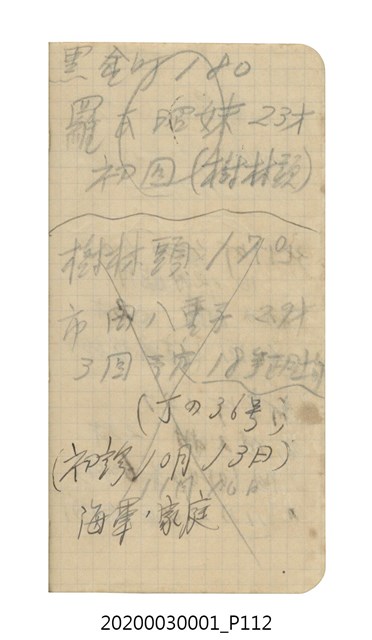 黒金町 180
羅 妹 23才
初回 (樹林頭)
樹林頭 170
市 八重子 29才
3回 予定 18
(丁の36号)
(初診 10月13日)
海軍・家庭
20200030001_P112